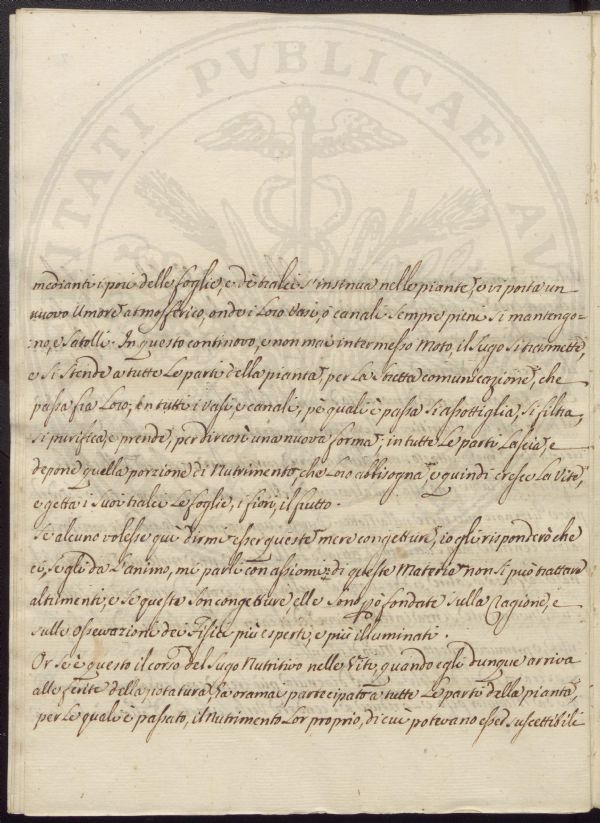 PVBLICAE
medianti i pori delle foglie, e de' tralci s'insinua nelle piante, e vi porta un
nuovo Umore atmosferico, onde i Loro Vasi, ò canali sempre pieni si mantengo=
:no, e satolli. In questo continovo, e non mai intermesso Moto, il Sugo si trasmette,
e si stende a tutte Le parti della pianta, per La stretta comunicazione, che
passa fra Loro; in tutti i vasi, e canali, pe' quali è passa si assottiglia, si filtra,
si purifica, e prende, per dir così una nuova forma; in tutte Le parti Lascia, e
depone quella porzione di Nutrimento, che Loro abbisogna, e quindi cresce La Vite,
e getta i suoi tralci Le foglie, i fiori, il frutto.
Se alcuno volesse quì dirmi esser queste mere congetture, io gli risponderò che
ei, se gli dà L'animo, mi parli con assiomi, di queste Materie non si può trattare
altrimenti; e se queste son congetture, elle sono però fondate sulla Ragione, e
sulle osservazioni dei Fisici più esperti, e più illuminati.
Or se è questo il corso del Sugo Nutritivo nelle Viti, quando egli dunque arriva
alle ferite della potatura, ha oramai partecipato a tutte Le parti della pianta,
per Le quali è passato, il Nutrimento Lor proprio, di cui potevano esser suscettibili